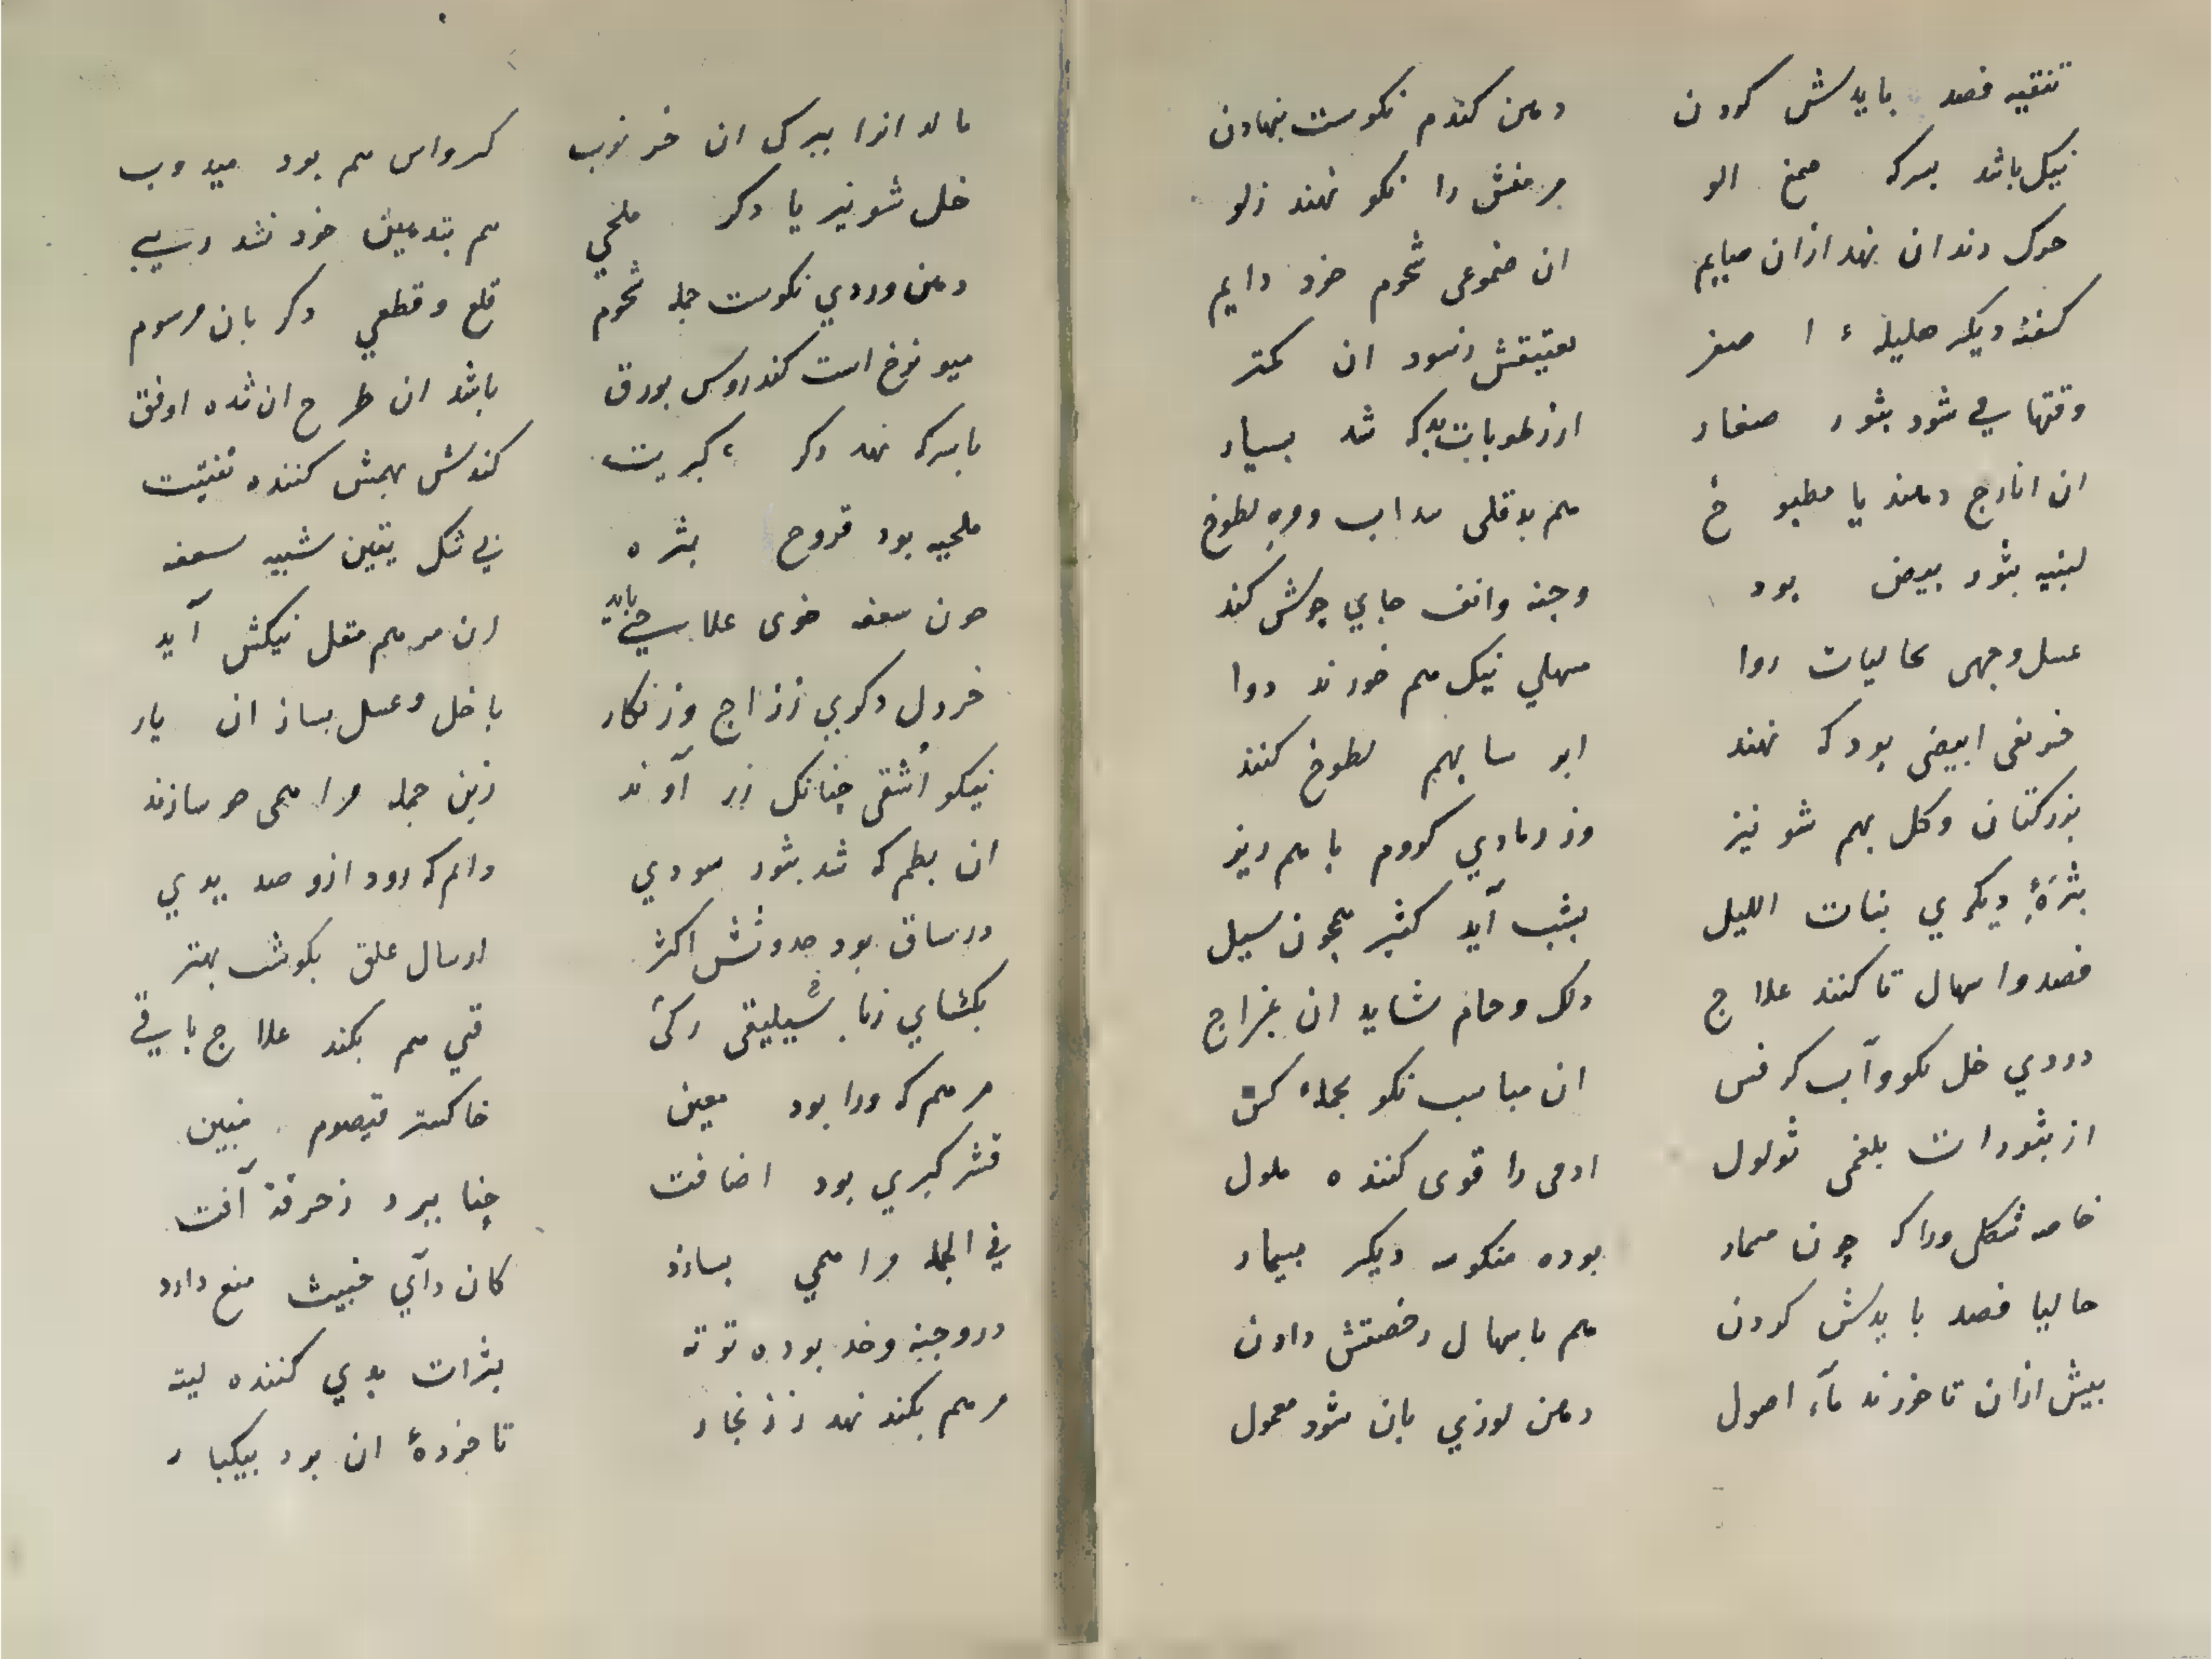 تنقیه فصد بایدش کردن دهن کندم نکوست بنهادن
نیک باشد بسرکه صمغ الو مر منفش را نکو نهند زلو
دندان نهد ازان صایم ان ضموعی شحوم خرد دایم
کفته دیکر هلیلهٔ ا صفر ان کمتر
وقتها می شود بثور صغار ارز طوبات بدکه شد بسیار
ان انارج دهند یا مطبو خ هم بدقلی لطوخ
لبنیه بثور بیض بود وجنه وانف جای جوشش کند
عسل وجهی حالیات روا مسهلی نیک هم خورند دوا
خربقی ابیضی بود که نهند بهم لطوخ کنند
بزرکتان وکل بهم شونیز وز رمادی کروم باهم ریز
بثرهٔ دیکری بنات اللیل بشب آید کثیر همچون سیل
فصد واسهال تا کنند علاج دلک وحمام شاید ان بمزاج
دردی خل نکو وآب کرفس ان مباسب نکو بجملهٔ کس
از بثورات بلغمی ثولول ادمی را قوی کننده ملول
خاصه شکلی وراکه چون مسمار بوده منکوسه دیکر بیمار
حالیا فصد بایدش کردن هم باسهال رخصتش دادن
بیش ازان تا خورند مآء اصول دهن لوزی بان شود معمول
مالد انرا ببرک ان خرنوب کرواس هم بود میدوب
خل شونیز یا دکر ملحی هم بتدهین خود نشد
دهن وردی نکوست جمله شحوم قلع وقطعی دکر بان مرسوم
میوفوخ است کندروس بورق باشد ان طرح ان شده اوفق
باسرکه نهد دکر کبریت کندش بهمش کننده تفتیت
ملحیه بود قروح بثره نی شکل یقین شبیه سعفه
چون سعفه خوی علاجی باید ان مرهم مقل نیکش آید
خردل دکری ززاج وزنکار با خل وعسل بساز ان یار
نیکو اشقی چنانکه زر آوند زین جمله مراهمی چو سازند
ان بطم که شد بثور سودی دایم که رود ازو صدیدی
درساق بود حدوثش اکثر ارسال علق بکوش بهتر
بکشای زنا بسیلیقی رکی قی هم بکند علاج باقی
مرهم که ورا بود معین خاکستر قیصوم مبین
قشر کبری بود اضافت چنا ببرد زحرقة آفت
فی الجمله مراهمی بسازد کان دآی خبیث منع دارد
دروجنه وخد بوده توته بثرات بدی کننده لیته
مرهم بکند نهد ززنجار تا خوردهٔ ان برد بیکبار